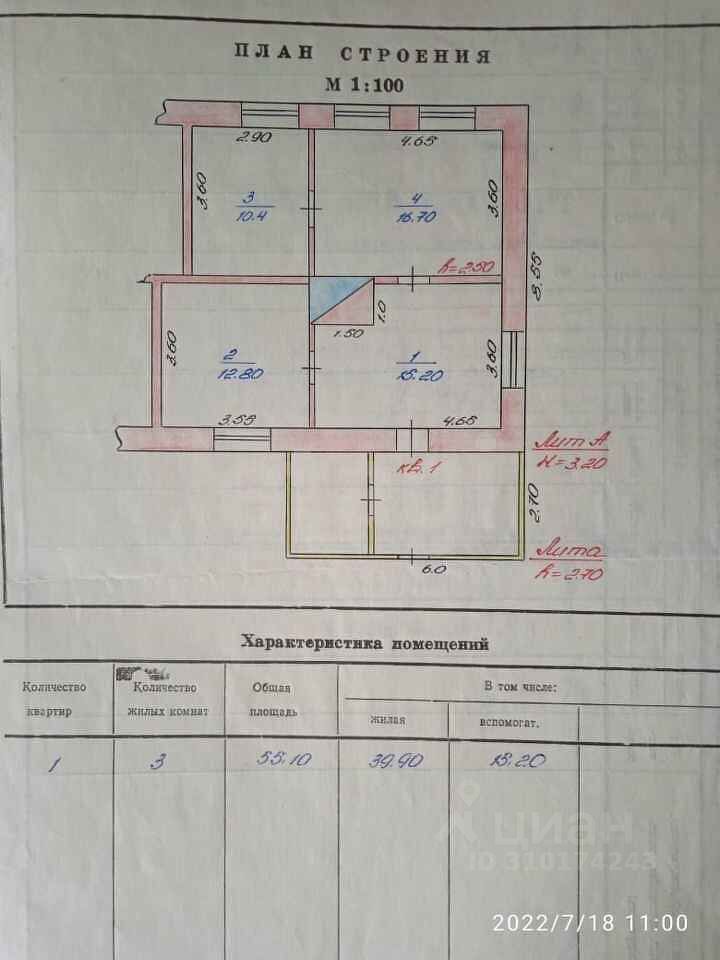 ПЛАН СТРОЕНИЯ
М 1:100
2.90
4.65
3.60
3
10.4
4
16.70
3.60
h=2.50
8.55
1.0
1.50
3.60
2
12.80
1
15.20
3.60
3.55
4.65
кв. 1
Лит А
H=3.20
2.70
6.0
Лит а
h=2.70
Характеристика помещений
Количество квартир
Количество жилых комнат
Общая площадь
В том числе:
жилая
вспомогат.
1
3
55.10
39.90
15.20
циан
ID 310174243
2022/7/18 11:00